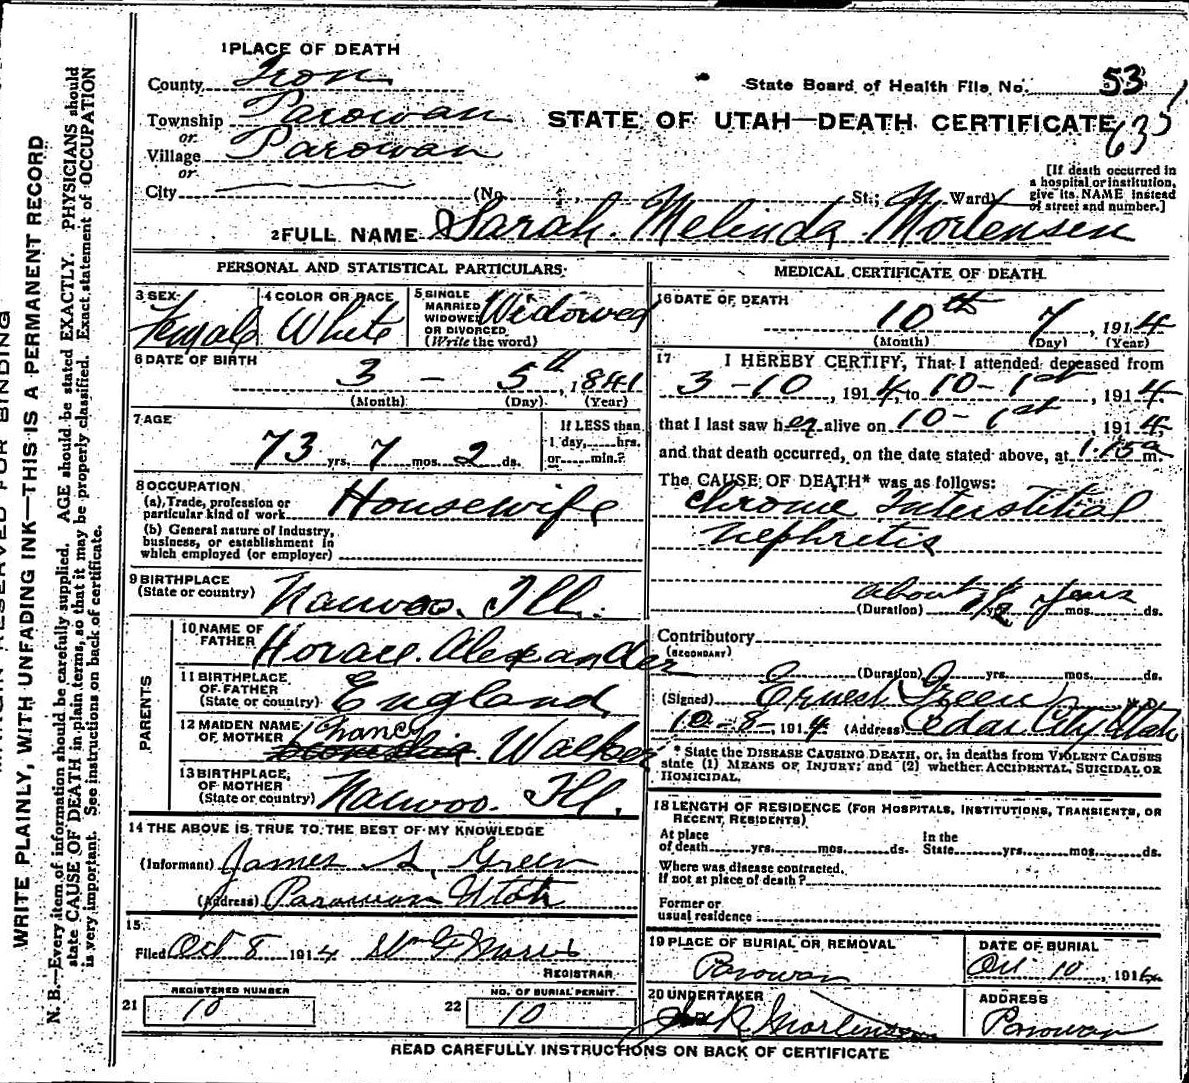 1 PLACE OF DEATH
County Iron
Township Parowan
or
Village Parowan
or
City (No. , St.; Ward)
State Board of Health File No. 53
635
STATE OF UTAH—DEATH CERTIFICATE
[If death occurred in
a hospital or institution,
give its NAME instead
of street and number.]
2 FULL NAME Sarah Melinda Mortensen
PERSONAL AND STATISTICAL PARTICULARS
3 SEX Female
4 COLOR OR RACE White
5 SINGLE
MARRIED
WIDOWED
OR DIVORCED
(Write the word)
Widowed
6 DATE OF BIRTH
3 – 5th, 1841
(Month) (Day) (Year)
7 AGE
73 yrs. 7 mos. 2 ds.
If LESS than
1 day, hrs.
or min.?
8 OCCUPATION
(a) Trade, profession or
particular kind of work Housewife
(b) General nature of Industry,
business, or establishment in
which employed (or employer)
9 BIRTHPLACE
(State or country) Nauvoo. Ill.
PARENTS
10 NAME OF
FATHER Horace Alexander
11 BIRTHPLACE
OF FATHER
(State or country) England
12 MAIDEN NAME
OF MOTHER Walker
13 BIRTHPLACE
OF MOTHER
(State or country) Nauvoo. Ill.
14 THE ABOVE IS TRUE TO THE BEST OF MY KNOWLEDGE
(Informant) James S. Green
(Address) Parowan Utah
15
Filed Oct 8 1914
REGISTRAR
REGISTERED NUMBER
21 10
NO. OF BURIAL PERMIT
22 10
MEDICAL CERTIFICATE OF DEATH
16 DATE OF DEATH
10th 7, 1914
(Month) (Day) (Year)
17 I HEREBY CERTIFY, That I attended deceased from
3-10, 1914, to 10-1st, 1914
that I last saw her alive on 10-1st, 1914,
and that death occurred, on the date stated above, at m.
The CAUSE OF DEATH* was as follows:
Chronic Interstitial
Nephretis
about years
(Duration) yrs. mos. ds.
Contributory
(SECONDARY)
(Duration) yrs. mos. ds.
(Signed) Ernest Green M.D.
10-8-, 1914 (Address) Cedar City Utah
* State the DISEASE CAUSING DEATH, or, in deaths from VIOLENT CAUSES
state (1) MEANS OF INJURY; and (2) whether ACCIDENTAL, SUICIDAL OR
HOMICIDAL.
18 LENGTH OF RESIDENCE (FOR HOSPITALS, INSTITUTIONS, TRANSIENTS, OR
RECENT RESIDENTS)
At place
of death yrs. mos. ds.
In the
State yrs. mos. ds.
Where was disease contracted,
If not at place of death?
Former or
usual residence
19 PLACE OF BURIAL OR REMOVAL
Parowan
DATE OF BURIAL
Oct 10, 1914
20 UNDERTAKER
ADDRESS
Parowan
READ CAREFULLY INSTRUCTIONS ON BACK OF CERTIFICATE
WRITE PLAINLY, WITH UNFADING INK—THIS IS A PERMANENT RECORD
N. B.—Every item of information should be carefully supplied. AGE should be stated EXACTLY. PHYSICIANS should
state CAUSE OF DEATH in plain terms, so that it may be properly classified. Exact statement of OCCUPATION
is very important. See instructions on back of certificate.